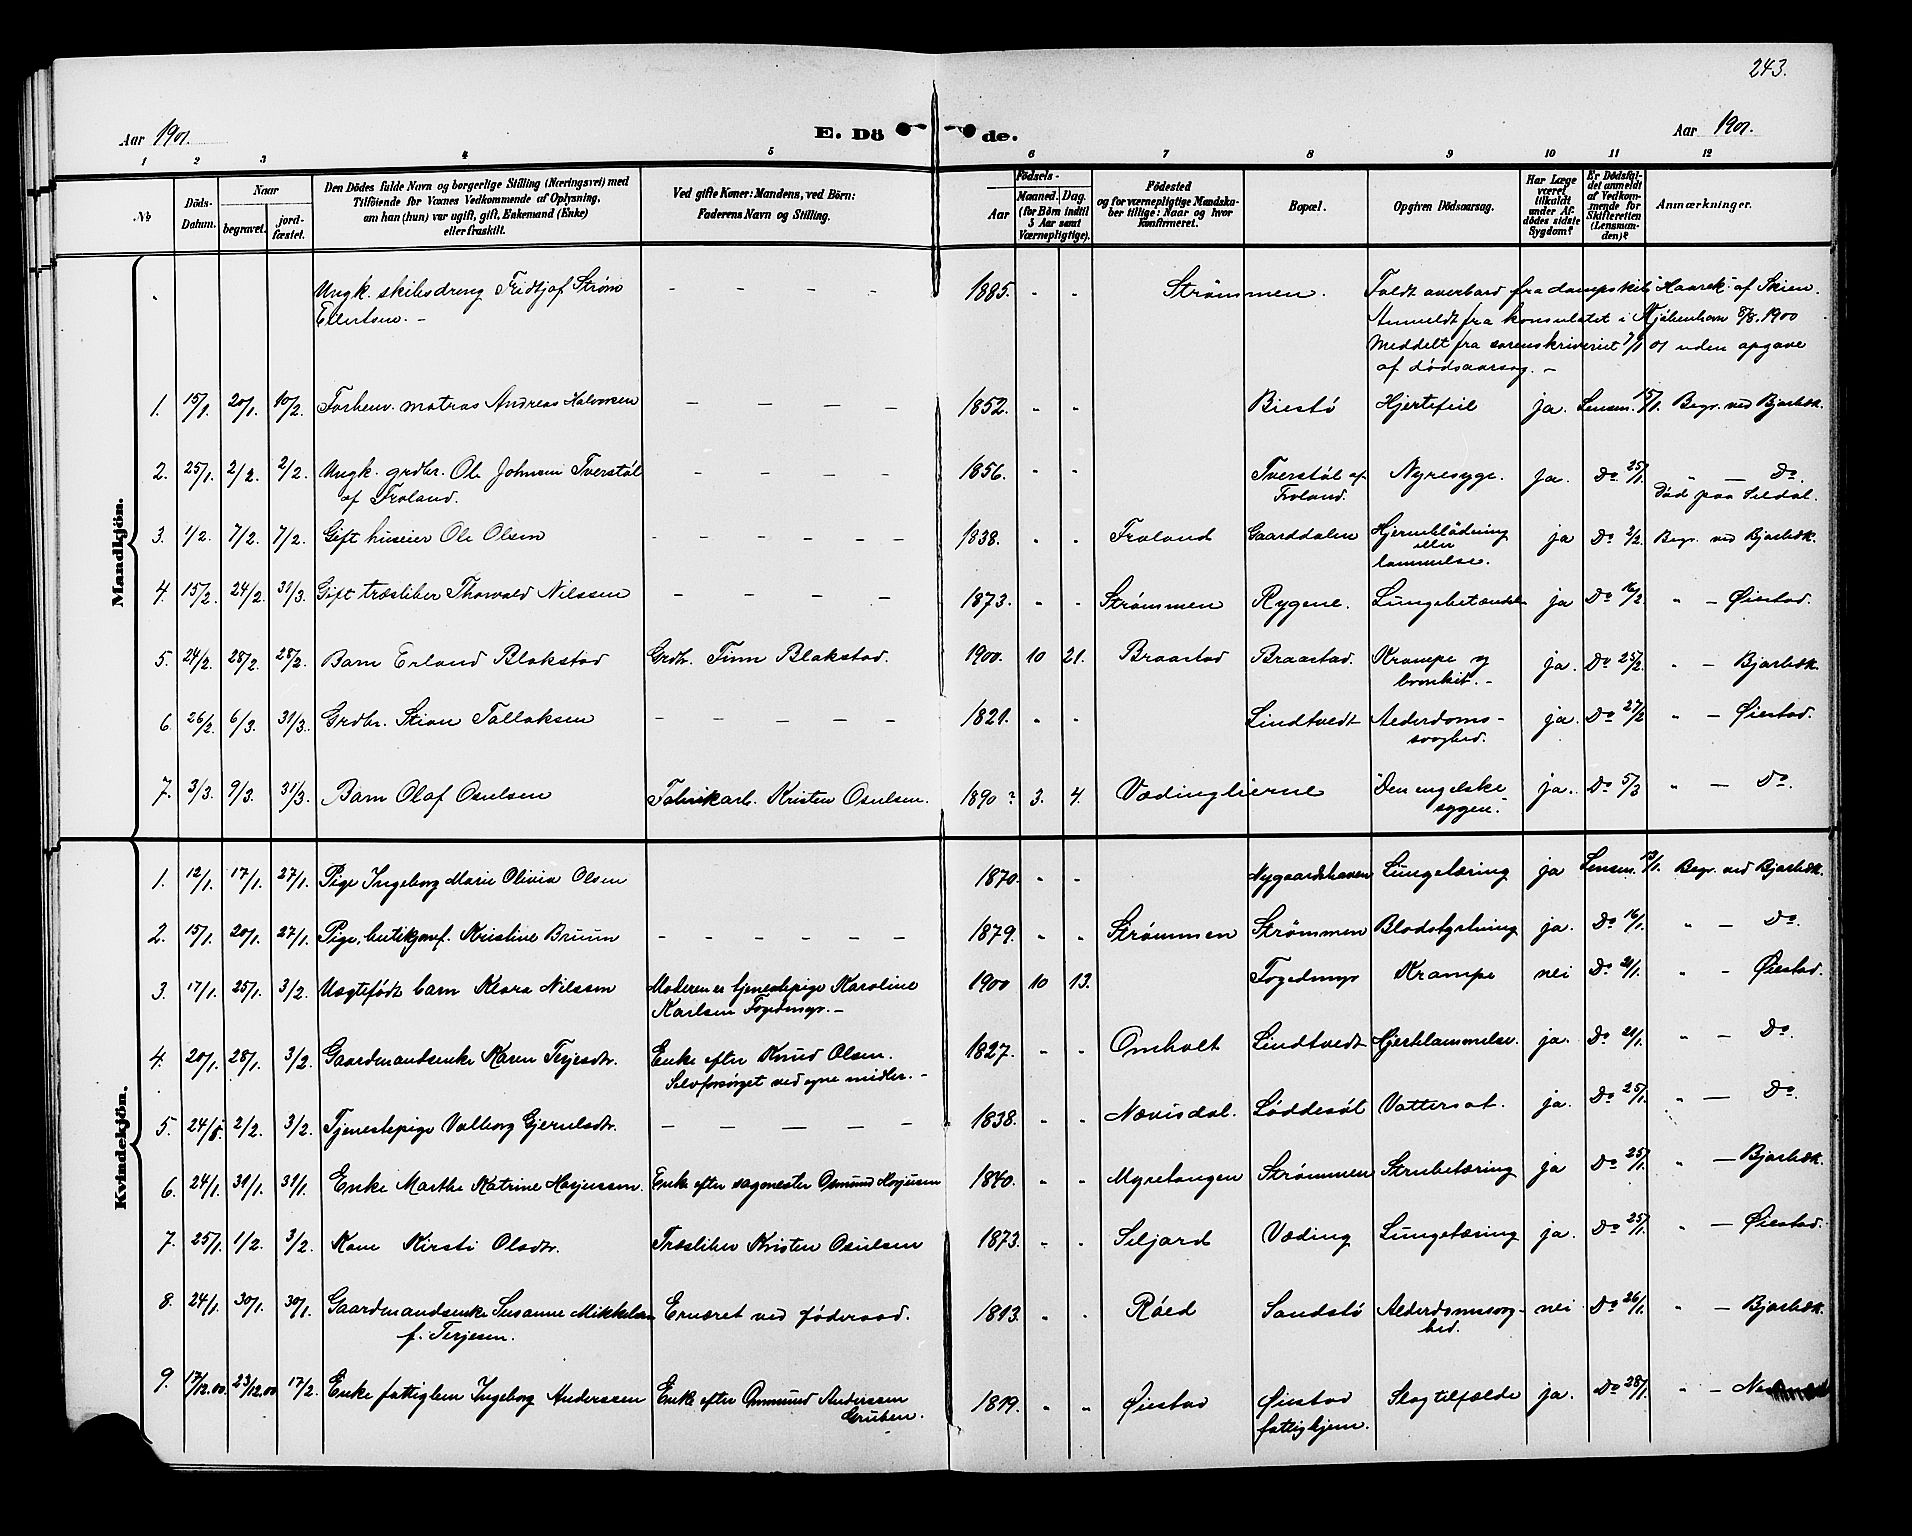 243.
Aar 1901.
E. Dö de.
Aar 1901.
1 2 3 4 5 6 7 8 9 10 11 12
No
Döds-Datum.
Naar
begravet.
jord-fæstet.
Den Dödes fulde Navn og borgerlige Stilling (Næringsvei) med
Tilföiende for Voxnes Vedkommende af Oplysning,
om han (hun) var ugift, gift, Enkemand (Enke)
eller fraskilt.
Ved gifte Koner: Mandens, ved Börn:
Faderens Navn og Stilling.
Födsels-
Aar
Maaned. Dag.
(for Börn indtil
5 Aar samt
Værnepligtige).
Födested
og for værnepligtige Mandska-
ber tillige: Naar og hvor
konfirmeret.
Bopæl.
Opgiven Dödsaarsag.
Har Læge
været
tilkaldt
under Af-
dödes sidste
Sygdom?
Er Dödsfal-
det anmeldt
af Vedkom-
mende for
Skifteretten
(Lensman-
den)?
Anmærkninger.
Mandkjön.
Ungk. skibsdreng Fridtjof Strøm — — — — 1885. " " Strömmen. Faldt overbord fra dampskib "Haarek" af Skien.
Ellertsen. — Anmeldt fra konsulatet i Kjöbenhavn 8/8. 1900
Meddelt fra sorenskriveriet 7/1 01 uden opgave
af dödsaarsag. —
1. 15/1. 20/1. 10/2. Forhenv. matros Andreas Halvorsen — — — — 1852. " " Biestø Hjertefeil ja. Lensm. 15/1. Begr. ved Bjorbæk.
2. 25/1. 2/2. 2/2. Ungk. grdbr. Ole Johnsen Tverstøl — — — — 1856. " " Tverstøl af Nyresyge. ja. Do 25/1 " — Do
af Froland. Froland. Død paa Seldal.
3. 1/2. 7/2. 7/2. Gift huseier Ole Olsen — — — — — — 1838. " " Froland Gaarddalen Hjerneblödning ja Do 2/2. Begr. ved Bjorbæk.
eller
lammelse.
4. 15/2. 24/2. 31/3. Gift træsliber Thorvald Nilssen — — — — 1873. " " Strømmen Rygene. Lungebetændelse ja Do 16/2. " — Øiestad.
5. 24/2. 28/2. 28/2. Barn Erland Blakstad Grdbr. Finn Blakstad. 1900. 10 21. Braastad Braastad. Krampe og ja. Do 25/2. " — Bjorbæk.
bronkit. —
6. 26/2. 6/3. 31/3. Grdbr. Stian Tallaksen — — — — — 1821. " " Lindtvedt Alderdoms- ja. Do 27/2 " — Øiestad.
svaghed.
7. 3/3. 9/3. 31/3. Barn Olaf Osulsen Fabrikarb. Kristen Osulsen. 1890? 3. 4. Vædinglierne "Den engelske ja. Do 5/3 " — Do
sygen."
Kvindekjön.
1. 12/1. 17/1. 27/1. Pige Ingeborg Marie Olivia Olsen 1870. " " Nygaardshaven Lungetæring ja Lensm. 13/1. Begr. ved Bjorbæk.
2. 15/1. 20/1. 27/1. Pige, butikjomf. Kristine Bruun — — — — — — 1879. " " Strømmen Strømmen Blodstyrtning ja. Do 16/1. " — Do
3. 17/1. 25/1. 3/2. Uægtefødt barn Klara Nilssen Moderen er tjenestepige Karoline 1900 10 13. Fogedmyr Krampe nei Do 21/1. " — Øiestad.
Karlsen Fogedmyr. —
4. 20/1. 28/1. 3/2. Gaardmandsenke Karen Terjesdtr. Enke efter Knud Olsen. 1827. " " Omholt Lindtvedt Hjertelammelse. ja. Do 21/1. " — Do
Selvforsørget ved egne midler. —
5. 24/1. 2/2. 3/2. Tjenestepige Valborg Gjerulsdtr. — — — — — 1838. " " Nævisdal. Løddesøl Vattersot. ja. Do 25/1. " — Do
6. 24/1. 31/1. 31/1. Enke Marthe Katrine Mosjussen. Enke efter sagmester Osmund Mosjusen 1840. " " Myretangen Strømmen Strubetæring ja Do 25/1. " — Bjorbæk.
7. 25/1. 1/2. 3/2. Kone Kirsti Olsdtr. Træsliber Kristen Osulsen 1873. " " Seljord Væding Lungetæring ja. Do 25/1. " — Øiestad.
8. 24/1. 30/1. 30/1. Gaardmandsenke Susanne Mikkelsen Ernæret ved føderaad. 1813. " " Røed Sandstø Alderdomssvag- nei Do 26/1. " — Bjorbæk.
f. Terjesen. hed.
9. 17/12.00. 23/12.00 17/2. Enke fattiglem Ingeborg Anderssen Enke efter Ommund Anderssen 1819. " " Øiestad Øiestad Slagtilfælde ja. Do 28/1. " —
Gruben. fattighjem.